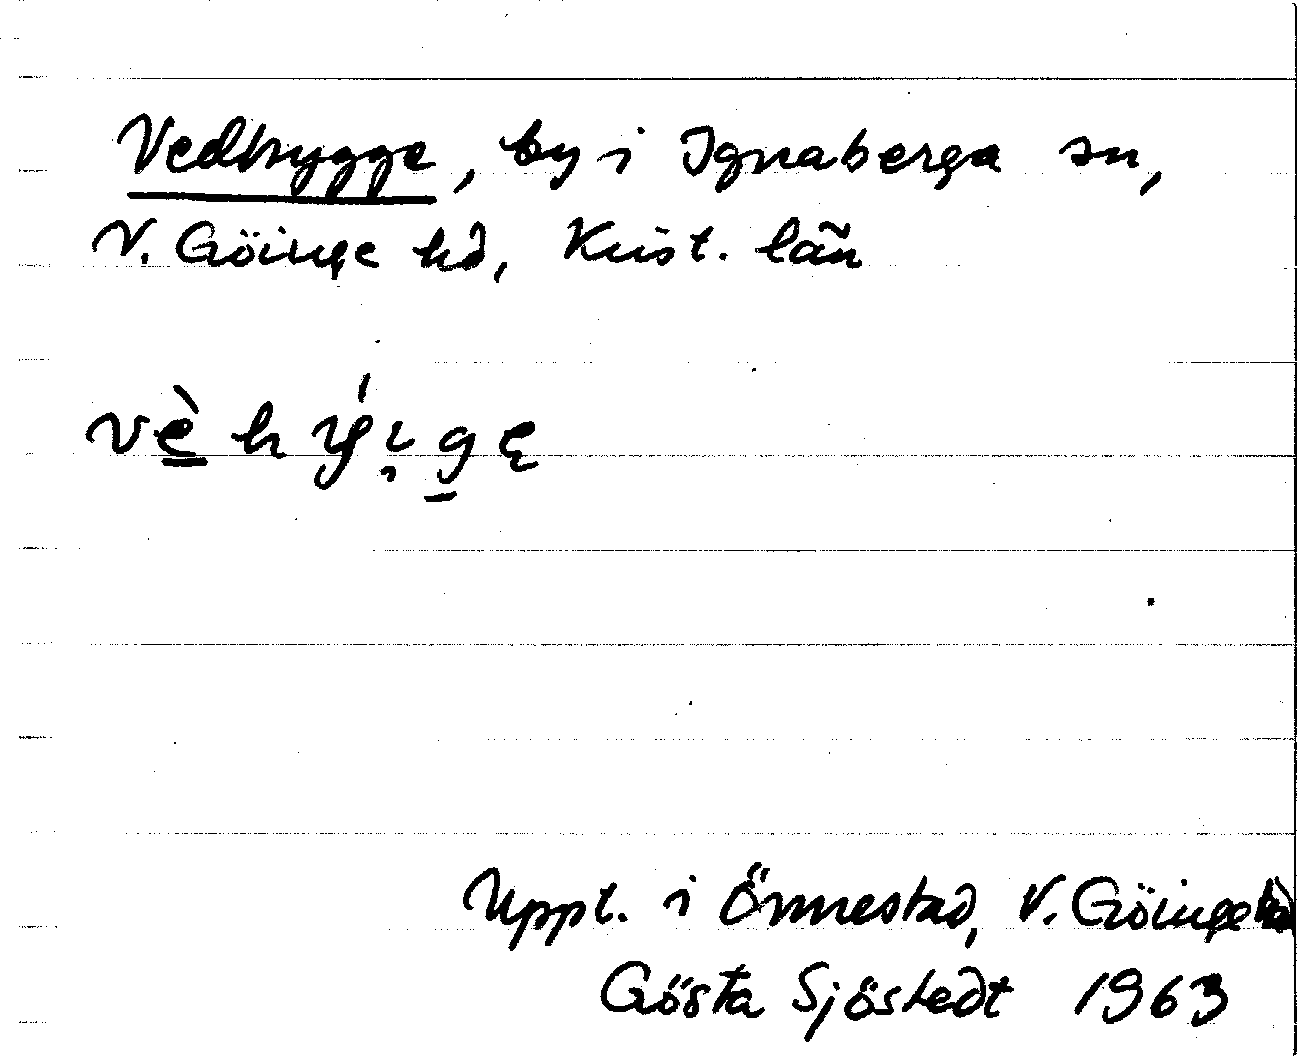 Vedhygge, by i Ignaberga sn,
V. Göinge hd, Krist. län
vè̱hý́ı̨g̱ę
Uppt. i Önnestad, V. Göinge hd
Gösta Sjöstedt 1963